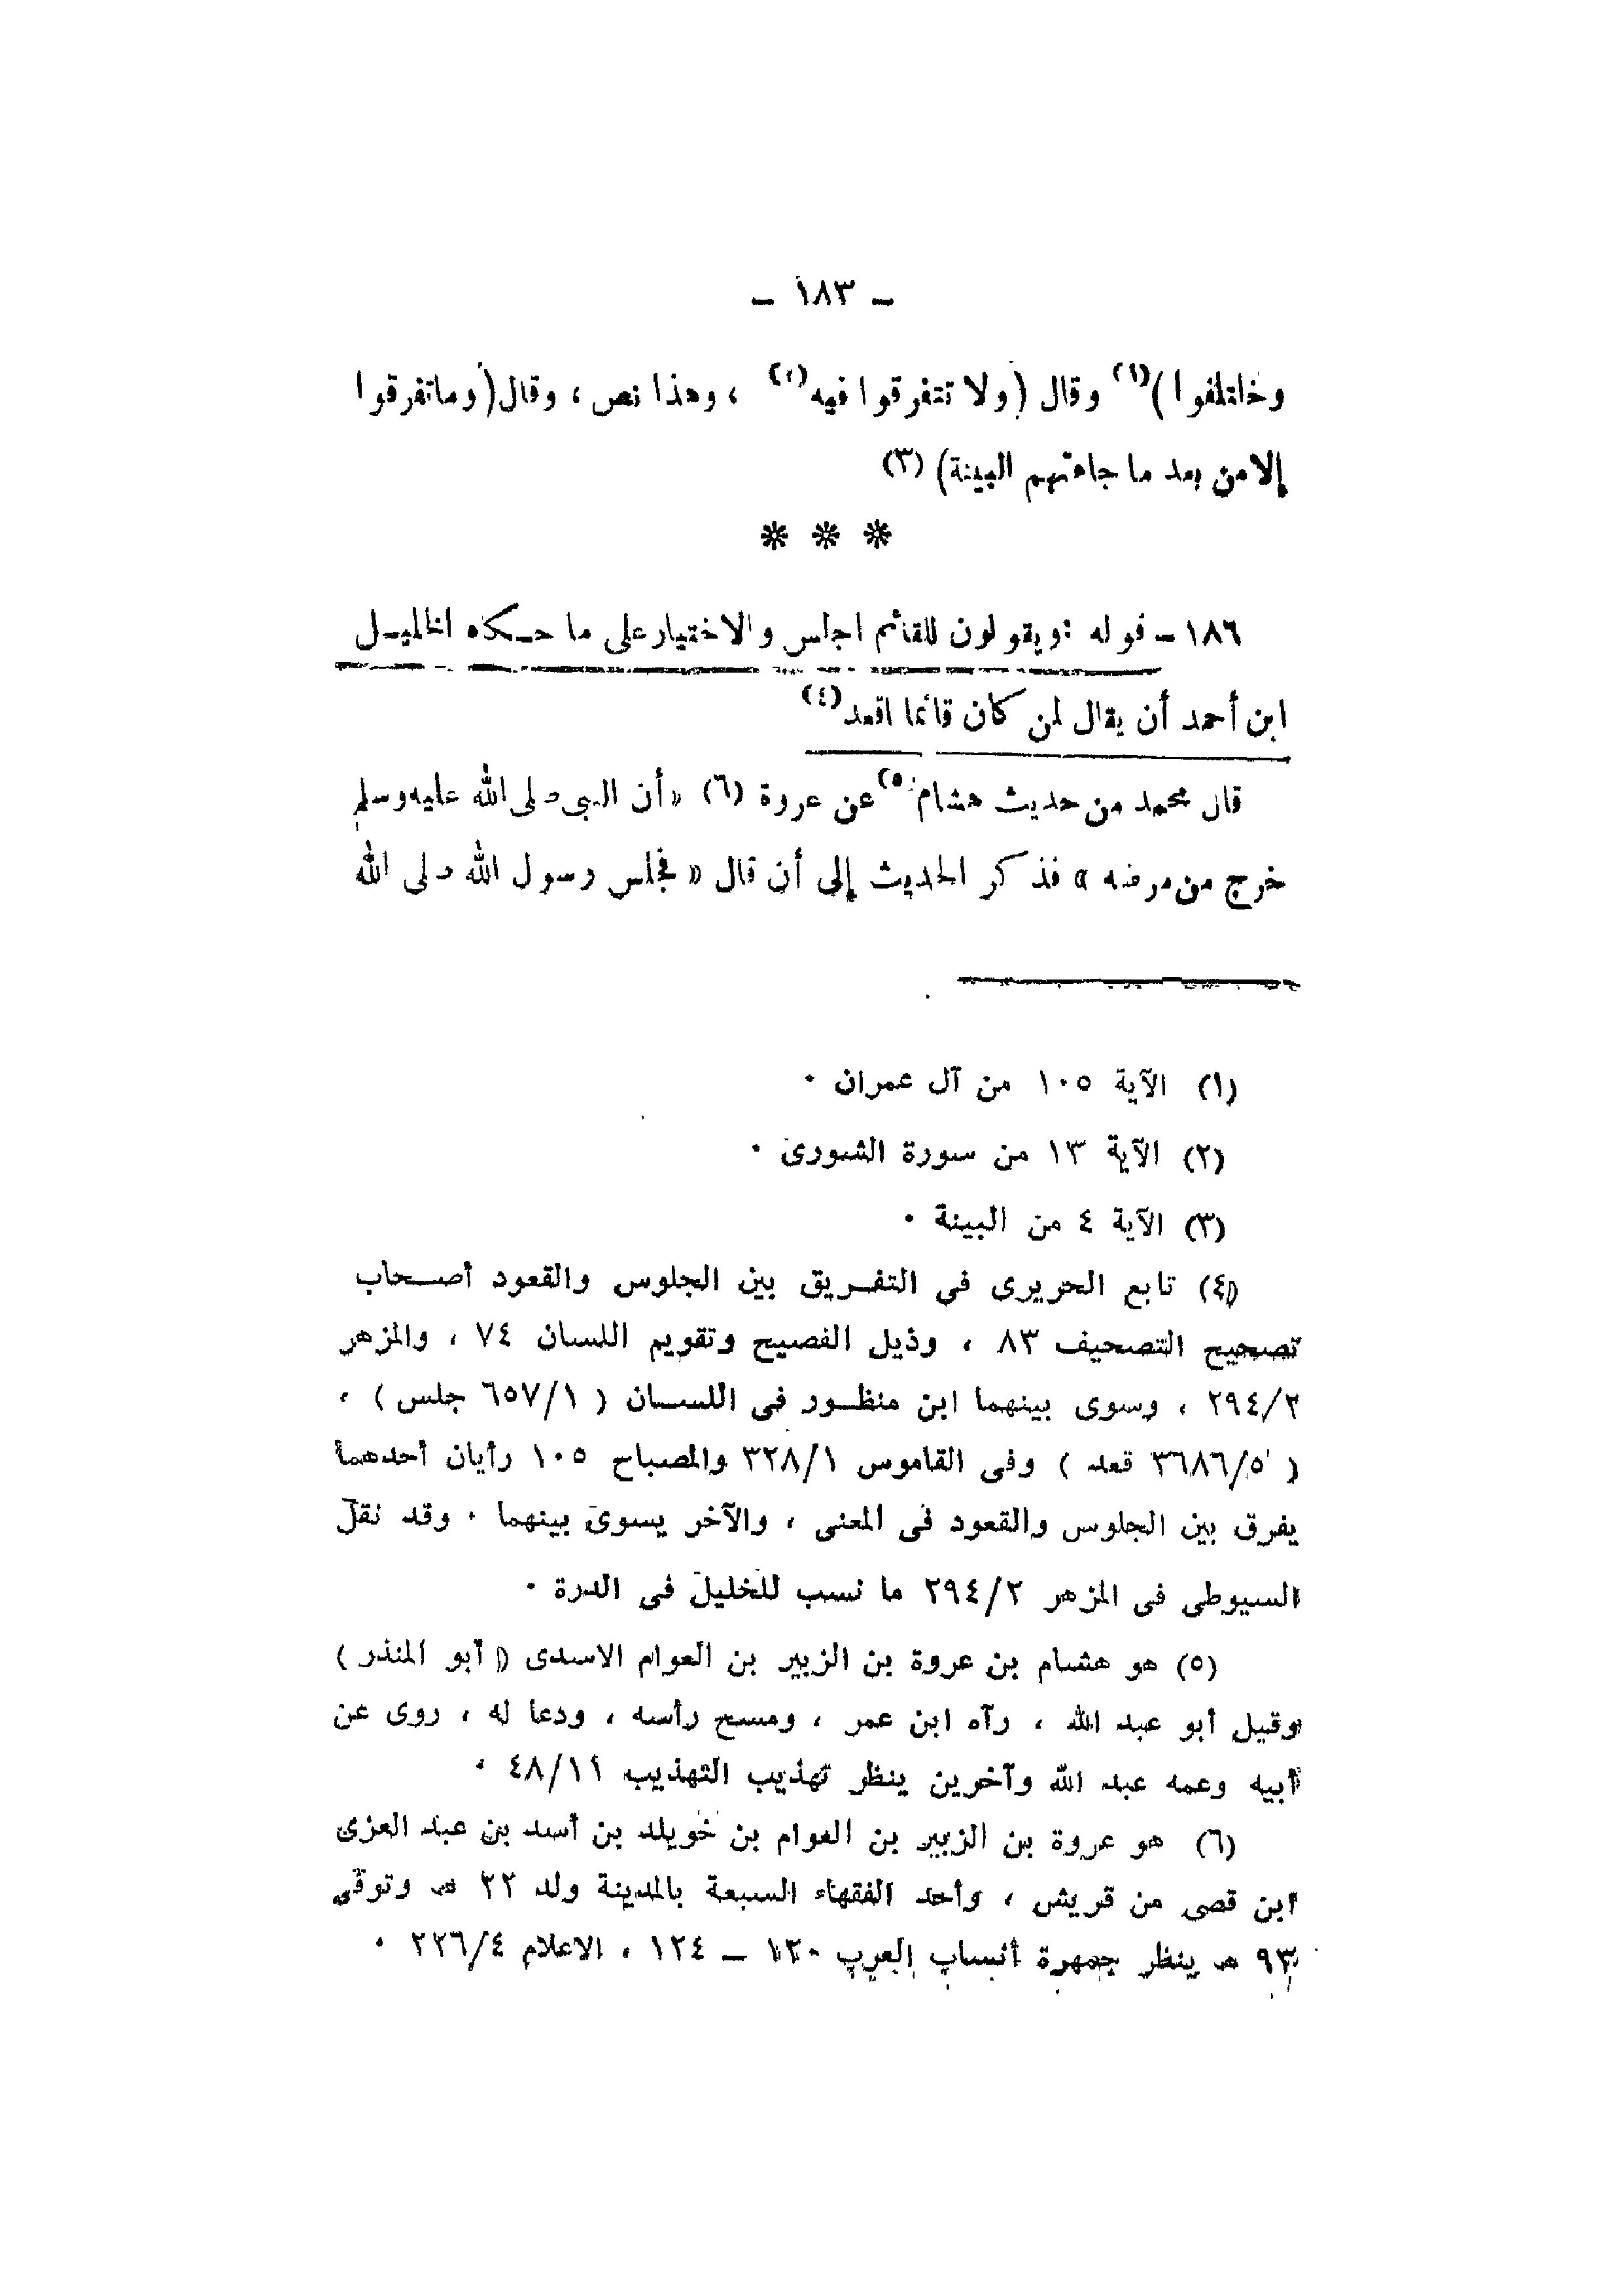 ـ ١٨٣ ـ
وخاتلفوا )(١) وقال ( ولا تتفرقوا فيه(٢) ، وهذا نص ، وقال( وماتفرقوا
إلا من بعد ما جاءتهم البينة) (٣)
* * *
١٨٦ ـ قوله : ويقولون للقائم اجلس والاختيار على ما حـكاه الخليـل
ابن أحمد أن يقال لمن كان قائما اقعد(٤)
قال محمد من حديث هشام(٥) عن عروة (٦) « أن النبى صلى الله عليه وسلم
خرج من مرضه » فذكر الحديث إلى أن قال « فجلس رسول الله صلى الله
(١) الآية ١٠٥ من آل عمران ٠
(٢) الآية ١٣ من سورة الشورى ٠
(٣) الآية ٤ من البينة ٠
(٤) تابع الحريرى فى التفـريق بين الجلوس والقعود أصـحاب
تصحيح التصحيف ٨٣ ، وذيل الفصيح وتقويم اللسان ٧٤ ، والمزهر
٢٩٤/٢ ، وسوى بينهما ابن منظـور فى اللسـان ( ٦٥٧/١ جلس ) ،
( ٣٦٨٦/٥ قعد ) وفى القاموس ٣٢٨/١ والمصباح ١٠٥ رأيان أحدهما
يفرق بين الجلوس والقعود فى المعنى ، والآخر يسوى بينهما ٠ وقد نقل
السيوطى فى المزهر ٢٩٤/٢ ما نسب للخليل فى الدرة ٠
(٥) هو هشام بن عروة بن الزبير بن العوام الاسدى ( أبو المنذر )
وقيل أبو عبد الله ، رآه ابن عمر ، ومسح رأسه ، ودعا له ، روى عن
أبيه وعمه عبد الله وآخرين ينظر تهذيب التهذيب ٤٨/١١ ٠
(٦) هو عروة بن الزبير بن العوام بن خويلد بن أسد بن عبد العزى
ابن قصى من قريش ، وأحد الفقهاء السبعة بالمدينة ولد ٢٢ هـ وتوفى
٩٣ هـ ينظر جمهرة أنساب العرب ١٢٠ ـ ١٢٤ ، الاعلام ٢٢٦/٤ ٠